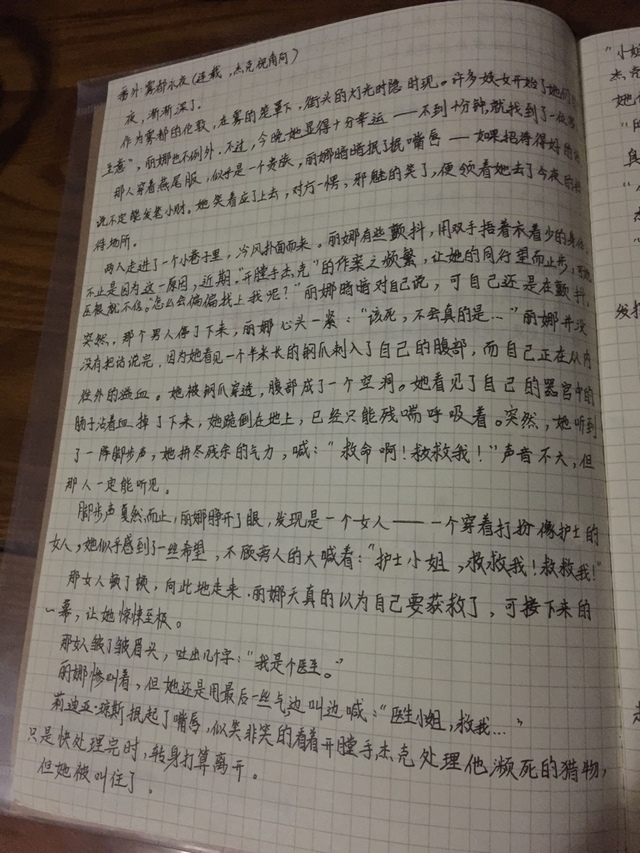 番外·雾都永夜（连载,杰克视角向）
夜，渐渐深了。
作为雾都的伦敦，在雾的笼罩下，街头的灯光时隐时现。许多妓女开始了她们的
生意”，丽娜也不例外.不过，今晚她显得十分幸运——不到十分钟,就找到了一位
那人穿着燕尾服，似乎是一个贵族，丽娜暗暗抿了抿嘴唇——如果招待得好的话
说不定能发老小财。她笑着应了上去，对方一愣，邪魅的笑了，便领着她去了今夜的
待地所。
两人走进了一个小巷子里，冷风扑面而来。丽娜有些颤抖，用双手捂着衣着少的身体
不止是因为这一原因，近期，“开膛手杰克”的作案之频繁，让她的同行望而止步，
压根就不信。“怎么会偏偏找上我呢？”丽娜暗暗对自己说，可自己还是在颤抖。
突然，那个男人停了下来，丽娜心头一紧：“该死，不会真的是…”丽娜并没
没有把话说完，因为她看见一个半米长的钢爪刺入了自己的腹部，而自己正在从内
往外的溢血。她被钢爪穿透，腹部成了一个空洞。她看见了自己的器官中的
肠子沾着血掉了下来，她跪倒在地上，已经只能残喘呼吸着。突然，她听到
了一阵脚步声，她拼尽残余的气力，喊：“救命啊！救救我！”声音不大，但
那人一定能听见。
脚步声戛然而止，丽娜睁开了眼，发现是一个女人——一个穿着打扮像护士的
女人，她似乎感到了一丝希望，不顾旁人的大喊着：“护士小姐，救救我！救救我！”
那女人顿了顿，向此地走来.丽娜天真的以为自己要获救了，可接下来的
一幕，让她惊悚至极。
那女人皱了皱眉头，吐出几个字：“我是个医生。”
丽娜惨叫着，但她还是用最后一丝气边叫边喊：“医生小姐，救我…”
莉迪亚·琼斯抿起了嘴唇，似笑非笑的看着开膛手杰克处理他濒死的猎物，
只是快处理完时，转身打算离开。
但她被叫住了.
“小姐
杰克
她
“
真
“
“
发扌